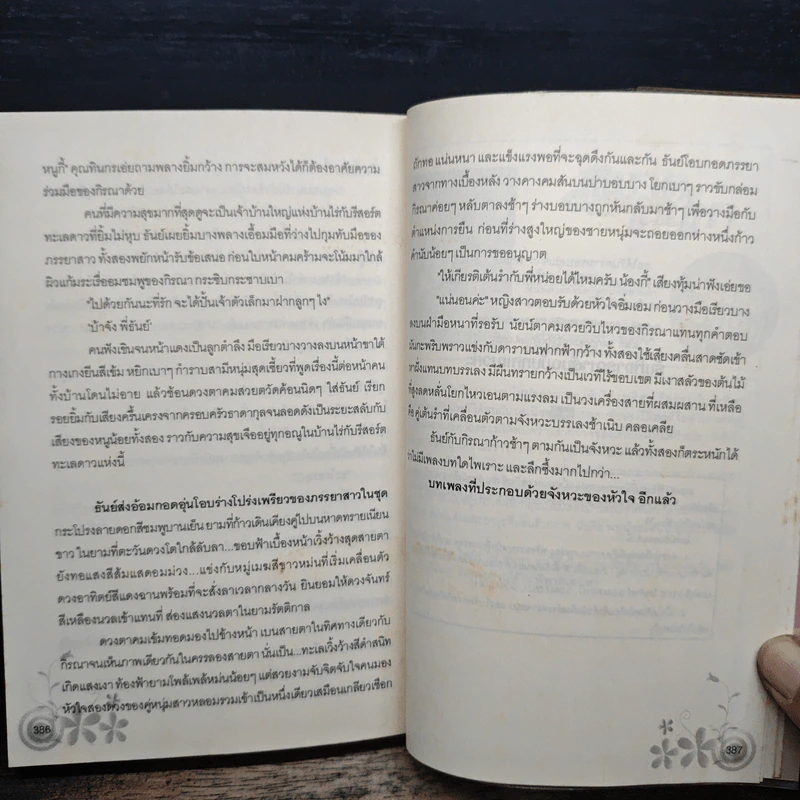 หนูกี้" คุณทินกรเอ่ยถามพลางยิ้มกว้าง การจะสมหวังได้ก็ต้องอาศัยความ
ร่วมมือของกิรณาด้วย
คนที่มีความสุขมากที่สุดดูจะเป็นเจ้าบ้านใหญ่แห่งบ้านไร่กับรีสอร์ต
ทะเลดาวที่ยิ้มไม่หุบ ธันย์เผยยิ้มบางพลางเอื้อมมือที่ว่างไปกุมทับมือของ
ภรรยาสาว ทั้งสองพยักหน้ารับข้อเสนอ ก่อนใบหน้าคมคร้ามจะโน้มมาใกล้
ผิวแก้มระเรื่ออมชมพูของกิรณา กระซิบกระซาบเบา
"ไปด้วยกันนะที่รัก จะได้ปั้นเจ้าตัวเล็กมาฝากลูกๆ ไง"
"บ้าจัง พี่ธันย์"
คนฟังเขินจนหน้าแดงเป็นลูกตำลึง มือเรียวบางวางลงบนหน้าขาใต้
กางเกงยีนสีเข้ม หยิกเบาๆ กำราบสามีหนุ่มสุดเซี้ยวที่พูดเรื่องนี้ต่อหน้าคน
ทั้งบ้านโดนไม่อาย แล้วช้อนดวงตาคมสวยตวัดค้อนนิดๆ ใส่ธันย์ เรียก
รอยยิ้มกับเสียงครื้นเครงจากครอบครัวธาดากุลจนลอดดังเป็นระยะสลับกับ
เสียงของหนูน้อยทั้งสอง ราวกับความสุขเจืออยู่ทุกอณูในบ้านไร่กับรีสอร์ต
ทะเลดาวแห่งนี้
ธันย์ส่งอ้อมกอดอุ่นโอบร่างโปร่งเพรียวของภรรยาสาวในชุด
กระโปรงลายดอกสีชมพูบานเย็น ยามที่ก้าวเดินเคียงคู่ไปบนหาดทรายเนียน
ขาว ในยามที่ตะวันดวงโตใกล้ลับลา...ขอบฟ้าเบื้องหน้าเวิ้งว้างสุดสายตา
ยังทอแสงสีส้มแสดอมม่วง...แข่งกับหมู่เมฆสีขาวหม่นที่เริ่มเคลื่อนตัว
ดวงอาทิตย์สีแดงฉานพร้อมที่จะสั่งลาเวลากลางวัน ยินยอมให้ดวงจันทร์
สีเหลืองนวลเข้าแทนที่ ส่องแสงนวลตาในยามรัตติกาล
ดวงตาคมเข้มทอดมองไปข้างหน้า เบนสายตาในทิศทางเดียวกับ
กิรณาจนเห็นภาพเดียวกันในครรลองสายตา นั่นเป็น...ทะเลเวิ้งว้างสีดำสนิท
เกิดแสงเงา ท้องฟ้ายามโพล้เพล้หม่นน้อยๆ แต่สวยงามจับจิตจับใจคนมอง
หัวใจสองดวงของคู่หนุ่มสาวหลอมรวมเข้าเป็นหนึ่งเดียวเสมือนเกลียวเชือก
386
ถักทอ แน่นหนา และแข็งแรงพอที่จะฉุดดึงกันและกัน ธันย์โอบกอดภรรยา
สาวจากทางเบื้องหลัง วางคางคมสันบนบ่าบอบบาง โยกเบาๆ ราวขับกล่อม
กิรณาค่อยๆ หลับตาลงช้าๆ ร่างบอบบางถูกหันกลับมาช้าๆ เพื่อวางมือกับ
ตำแหน่งการยืน ก่อนที่ร่างสูงใหญ่ของชายหนุ่มจะถอยออกห่างหนึ่งก้าว
คำนับน้อยๆ เป็นการขออนุญาต
"ให้เกียรติเต้นรำกับพี่หน่อยได้ไหมครับ น้องกี้" เสียงทุ้มน่าฟังเอ่ยขอ
"แน่นอนค่ะ" หญิงสาวตอบรับด้วยหัวใจอิ่มเอม ก่อนวางมือเรียวบาง
ลงบนฝ่ามือหนาที่รอรับ นัยน์ตาคมสวยวิบไหวของกิรณาแทนทุกคำตอบ
มันกะพริบพราวแข่งกับดาราบนฟากฟ้ากว้าง ทั้งสองใช้เสียงคลื่นสาดซัดเข้า
หาฝั่งแทนบทบรรเลง มีผืนทรายกว้างเป็นเวทีไร้ขอบเขต มีเงาสลัวของต้นไม้
ที่สูงลดหลั่นโยกไหวเอนตามแรงลม เป็นวงเครื่องสายที่ผสมผสาน ที่เหลือ
คือ คู่เต้นรำที่เคลื่อนตัวตามจังหวะบรรเลงช้าเนิบ คลอเคลีย
ธันย์กับกิรณาก้าวช้าๆ ตามกันเป็นจังหวะ แล้วทั้งสองก็ตระหนักได้
ว่าไม่มีเพลงบทใดไพเราะ และลึกซึ้งมากไปกว่า...
บทเพลงที่ประกอบด้วยจังหวะของหัวใจ อีกแล้ว
387